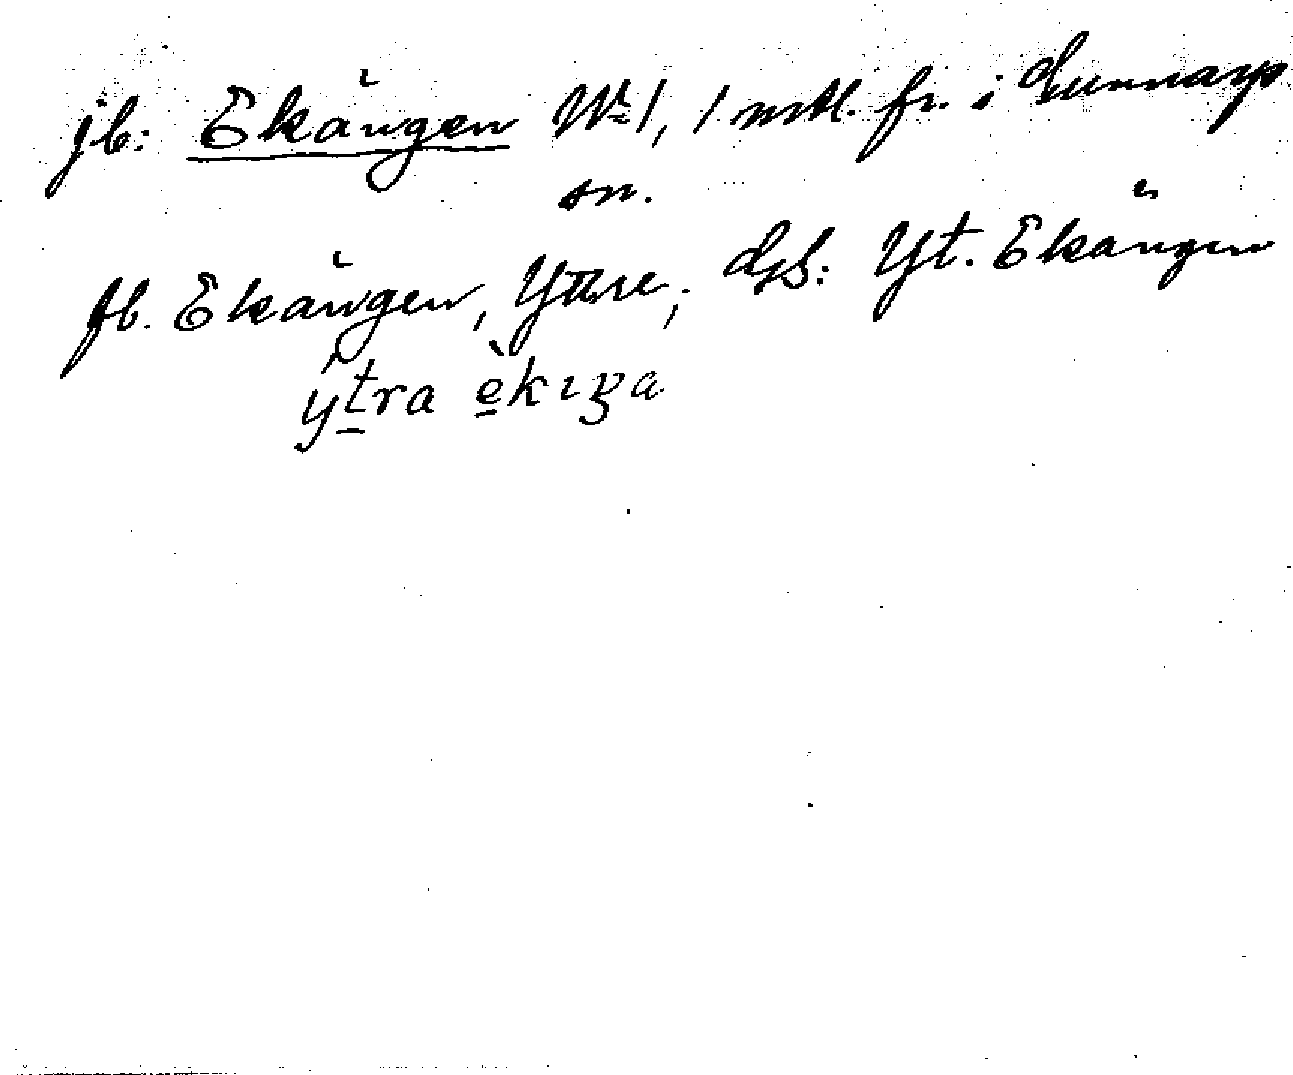 jb: Ekängen No 1, 1 mtl. fr. i Gunnarps
sn.
fb. Ekängen, Yttre; GS: Yt. Ekängen
ýtra èkıŋa